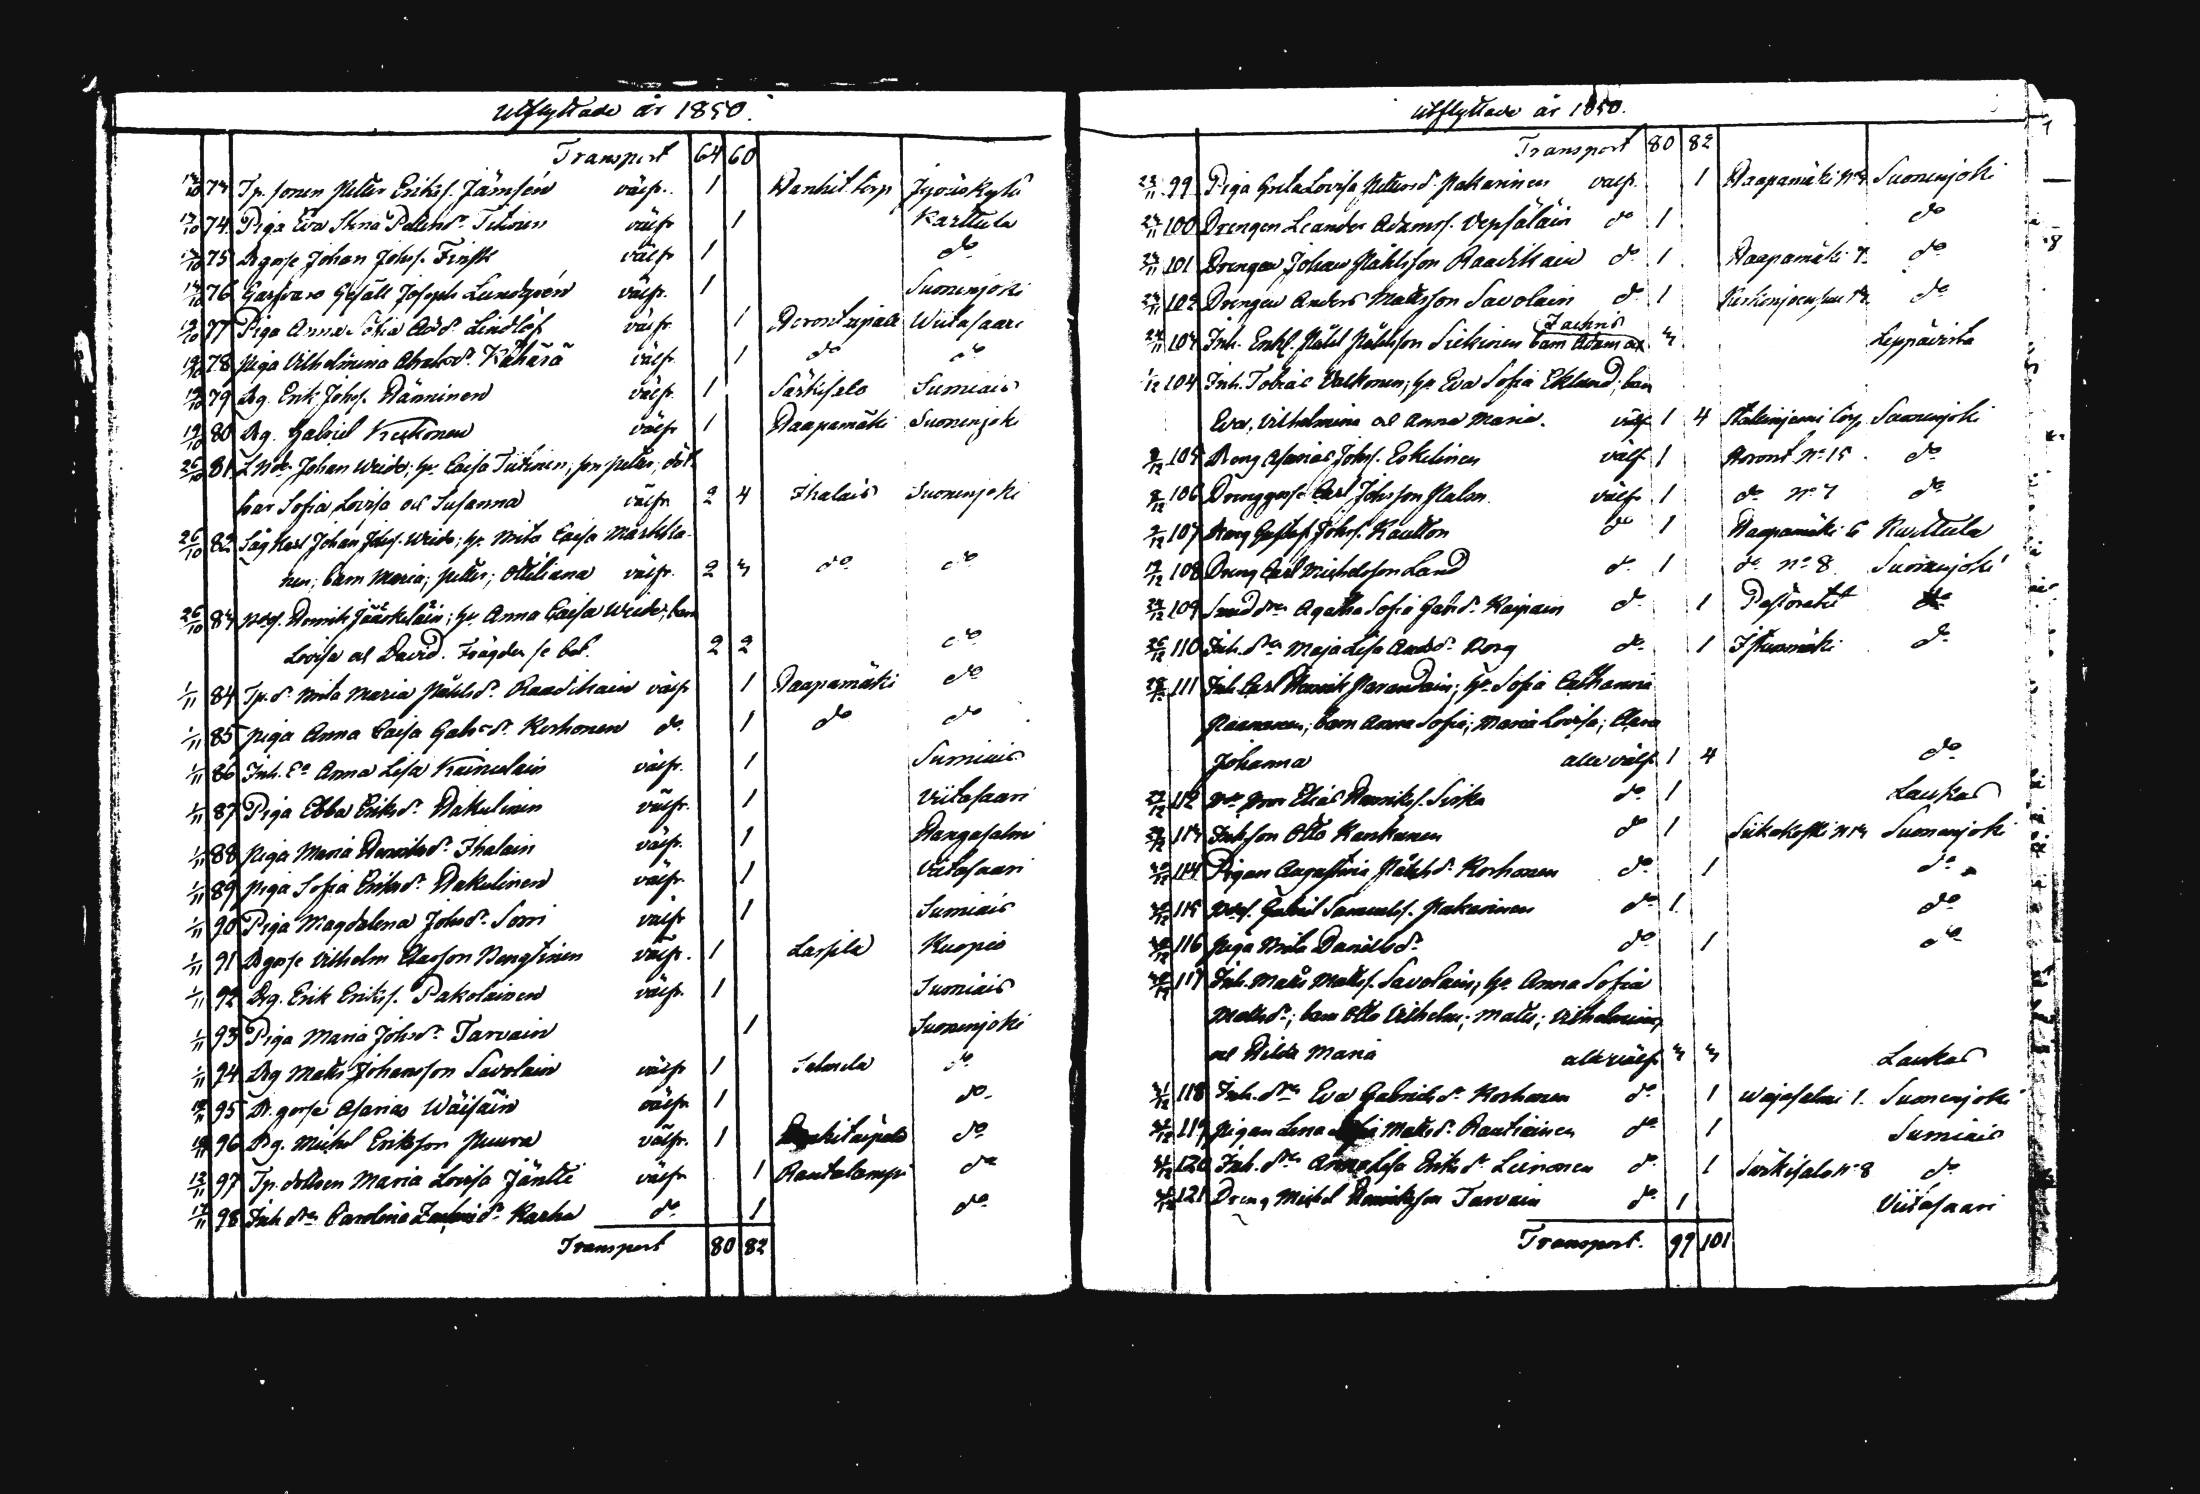 Utflyttade år 1850.
Transport 64 60
13/10 73 Tp. sonen Petter Eriks. Jämsén välfr. 1 Hanhit. torp Jyväskylä
13/10 74 Piga Eva Stina Petersdr. Titinen välfr 1 Karttula
13/10 75 Drgosse Johan Johs. Finsk välfr 1 do
76 Garfvare Gesäll Joseph Lundgrén välfr. 1 Suonenjoki
19/10 77 Piga Anna Sofia And.dr. Lindlöf välfr. 1 Wiitasaari
19/10 78 Piga Vilhelmina Abrahdr. Kähärä välfr. 1 do do
19/10 79 Drg. Erik Johs. Hänninen välfr. 1 Särkisalo Sumiais
19/10 80 Drg. Gabriel Korhonen välfr 1 Haapamäki Suonenjoki
26/10 81 Johan Weide; hu. Caisa Tiitinen, son Peter; döt
trar Sofia Lovisa och Susanna välfr. 2 4 Ihalais Suonenjoki
26/10 82 Johan Johs. Weide; hu. Brita Caisa Markka-
nen; barn Maria; Petter; Ottiliana välfr. 2 3 do do
26/10 83 Henrik Jääskeläin; hu. Anna Caisa Weide; barn
Lovisa och David. 2 2 do
1/11 84 Tp. dr. Brita Maria Påhlsdr. Raadikain välfr 1 Haapamäki do
1/11 85 Piga Anna Caisa Gabr.dr. Korhonen do. 1 do do
1/11 86 Inh. Ea Anna Lisa Kainulain välfr. 1 Sumiais
1/11 87 Piga Ebba Eriksdr. Hakulinen välfr. 1 Viitasaari
1/11 88 Piga Maria Henriksdr. Ihalain välfr. 1 Hangasalmi
1/11 89 Piga Sofia Eriksdr. Hakulinen välfr. 1 Viitasaari
1/11 90 Piga Magdalena Johsdr. Sorri välfr 1 Sumiais
1/11 91 Drgosse Vilhelm Classon Bengtinen välfr. 1 Lassila Kuopio
1/11 92 Drg. Erik Eriks. Pakolainen välfr. 1 Sumiais
1/11 93 Piga Maria Johsdr. Tarvain 1 Suonenjoki
1/11 94 Drg Mats Johansson Savolain välfr 1 do
95 Dr. gosse Asarias Wäisäin välfr 1 do
96 Drg. Michel Eriksson Puura välfr. 1 do
12/11 97 Tp. dottren Maria Lovisa Jäntti välfr 1 Rautalampi do
17/11 98 Inh. dr. Carolina Zachrisdr. Karha do. 1 do
Transport 80 82
Utflyttade år 1850.
Transport 80 82
23/11 99 Piga Greta Lovisa Petersd. Pakarinen välfr. 1 Haapamäki No 3 Suonenjoki
100 Drengen Leander Adams. Vepsäläin do 1 do
101 Drengen Johan Påhlsson Raadikain do 1 Haapamäki 7. do
102 Drengen Anders Matsson Savolain do 1 do
103 Inh. Enkl. Påhl Påhlsson Siekinen barn Adam och Zachris 3 Leppävirta
1/12 104 Inh. Tobias Valkonen; hu. Eva Sofia Eklund; barn
Eva, Vilhelmina och Anna Maria. välfr 1 4 Suonenjoki
8/12 105 Dreng Asarias Johs. Eskelinen välfr 1 No 15 do
8/12 106 Drenggosse Carl Johsson Halon välfr 1 do No 7 do
107 Dreng Gustaf Johs. Kautton do 1 Haapamäki 6 Karttula
108 Dreng Carl Michelsson Land do 1 do No 8 Suonenjoki
109 Agatha Sofia Gabrdr. Kaipain do 1 Pastoratet do
110 Inh. dr. Maja Lisa Andsdr. Borg do 1 Istunmäki do
111 Inh. Carl Henrik Parandain; hu. Sofia Catharina
Paananen; barn Anna Sofia; Maria Lovisa; Clara
Johanna alla välfr 1 4 do
112 Elias Henriks. Sirka do. 1 Laukas
113 Inh. son Otto Kankanen do 1 Siikakoski No 3 Suonenjoki
114 Pigan Augustina Påhlsdr. Korhonen do. 1 do
115 Gabriel Samuels. Pakarinen do 1 do
116 Piga Brita Danielsdr. do 1 do
117 Inh. Mats Mats. Savolain; hu. Anna Sofia
Matsdr.; barn Otto Vilhelm; Mats; Vilhelmina;
och Hilda Maria alla välfr 3 3 Laukas
118 Inh. dr. Eva Gabrielsdr. Korhonen do 1 Wajasalmi 1. Suonenjoki
119 Pigan Lena Matsdr. Rautiainen do 1 Sumiais
120 Inh. dr. Anna Lisa Eriksdr. Leinonen do 1 Särkisalo No 8 do
121 Dreng Michel Henriksson Tarvain do 1 Viitasaari
Transport. 99 101